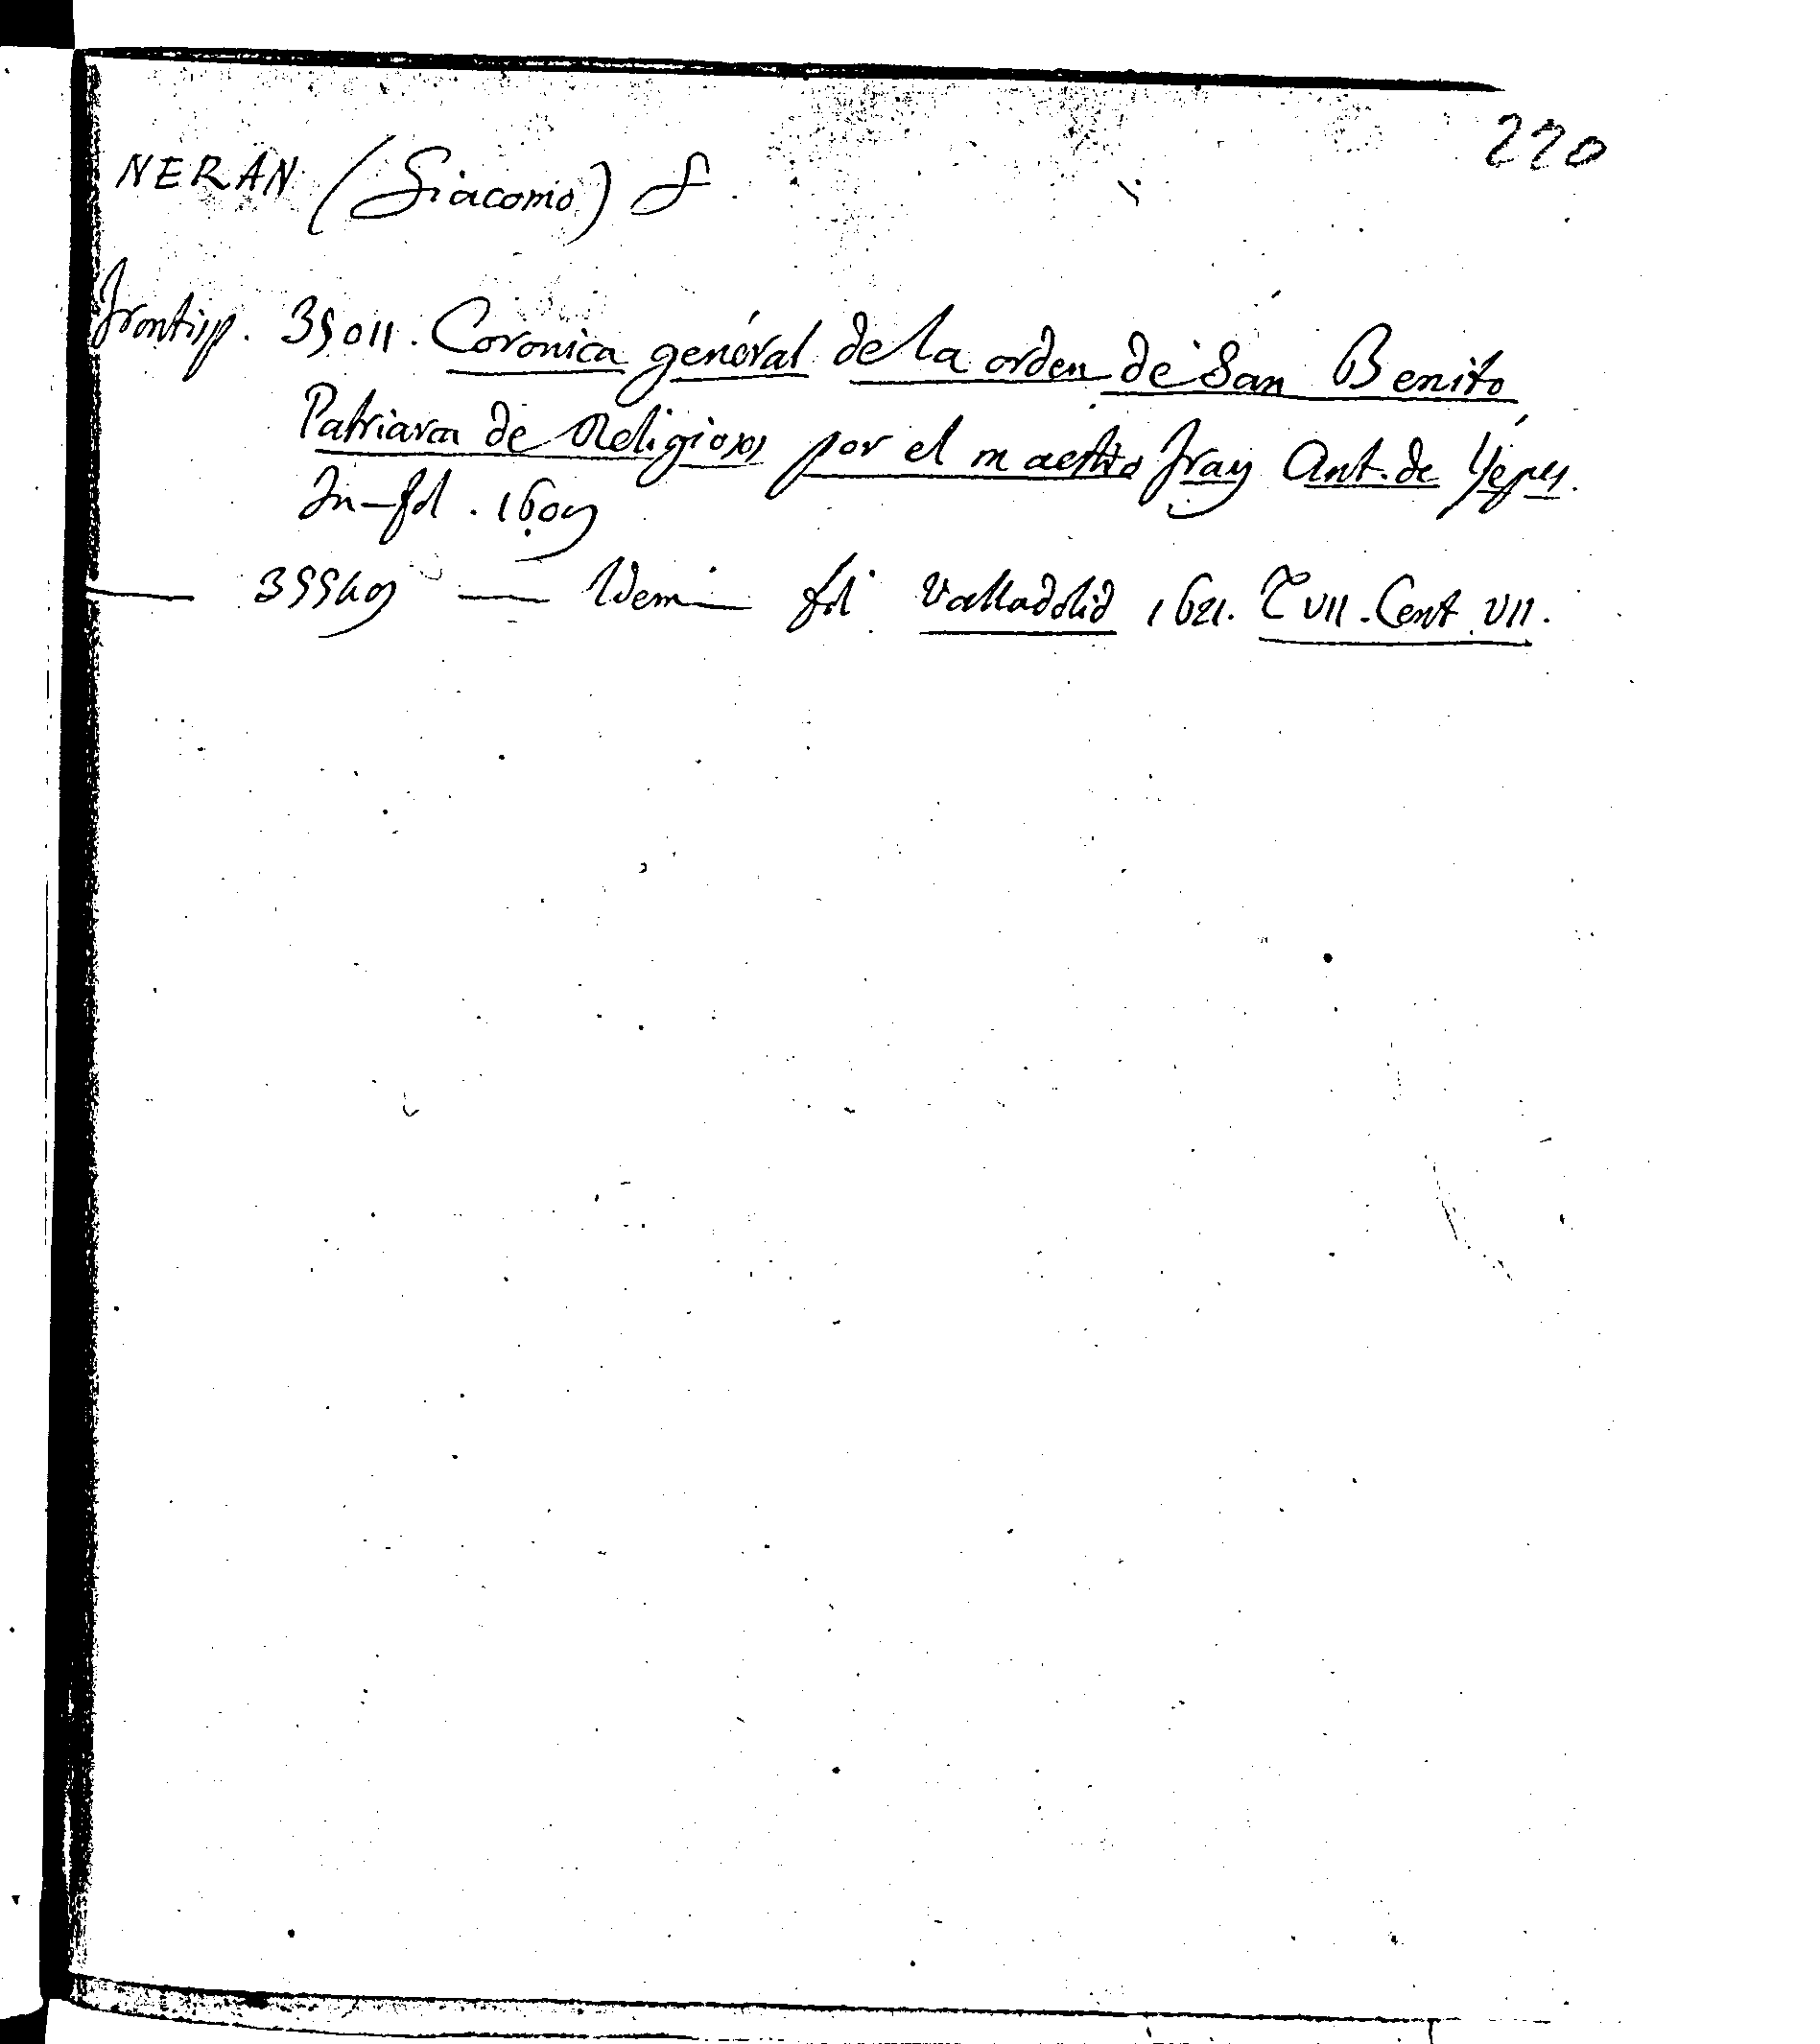 220
NERAN (Giacomo) f.
Frontisp. 35011. Coronica general de la orden de San Benito
Patriarca de Religiosos por el maestro Fray Ant. de Yepes.
In-fol. 1609
— 35549 — Idem — fol Valladolid 1621. T VII. Cent VII.